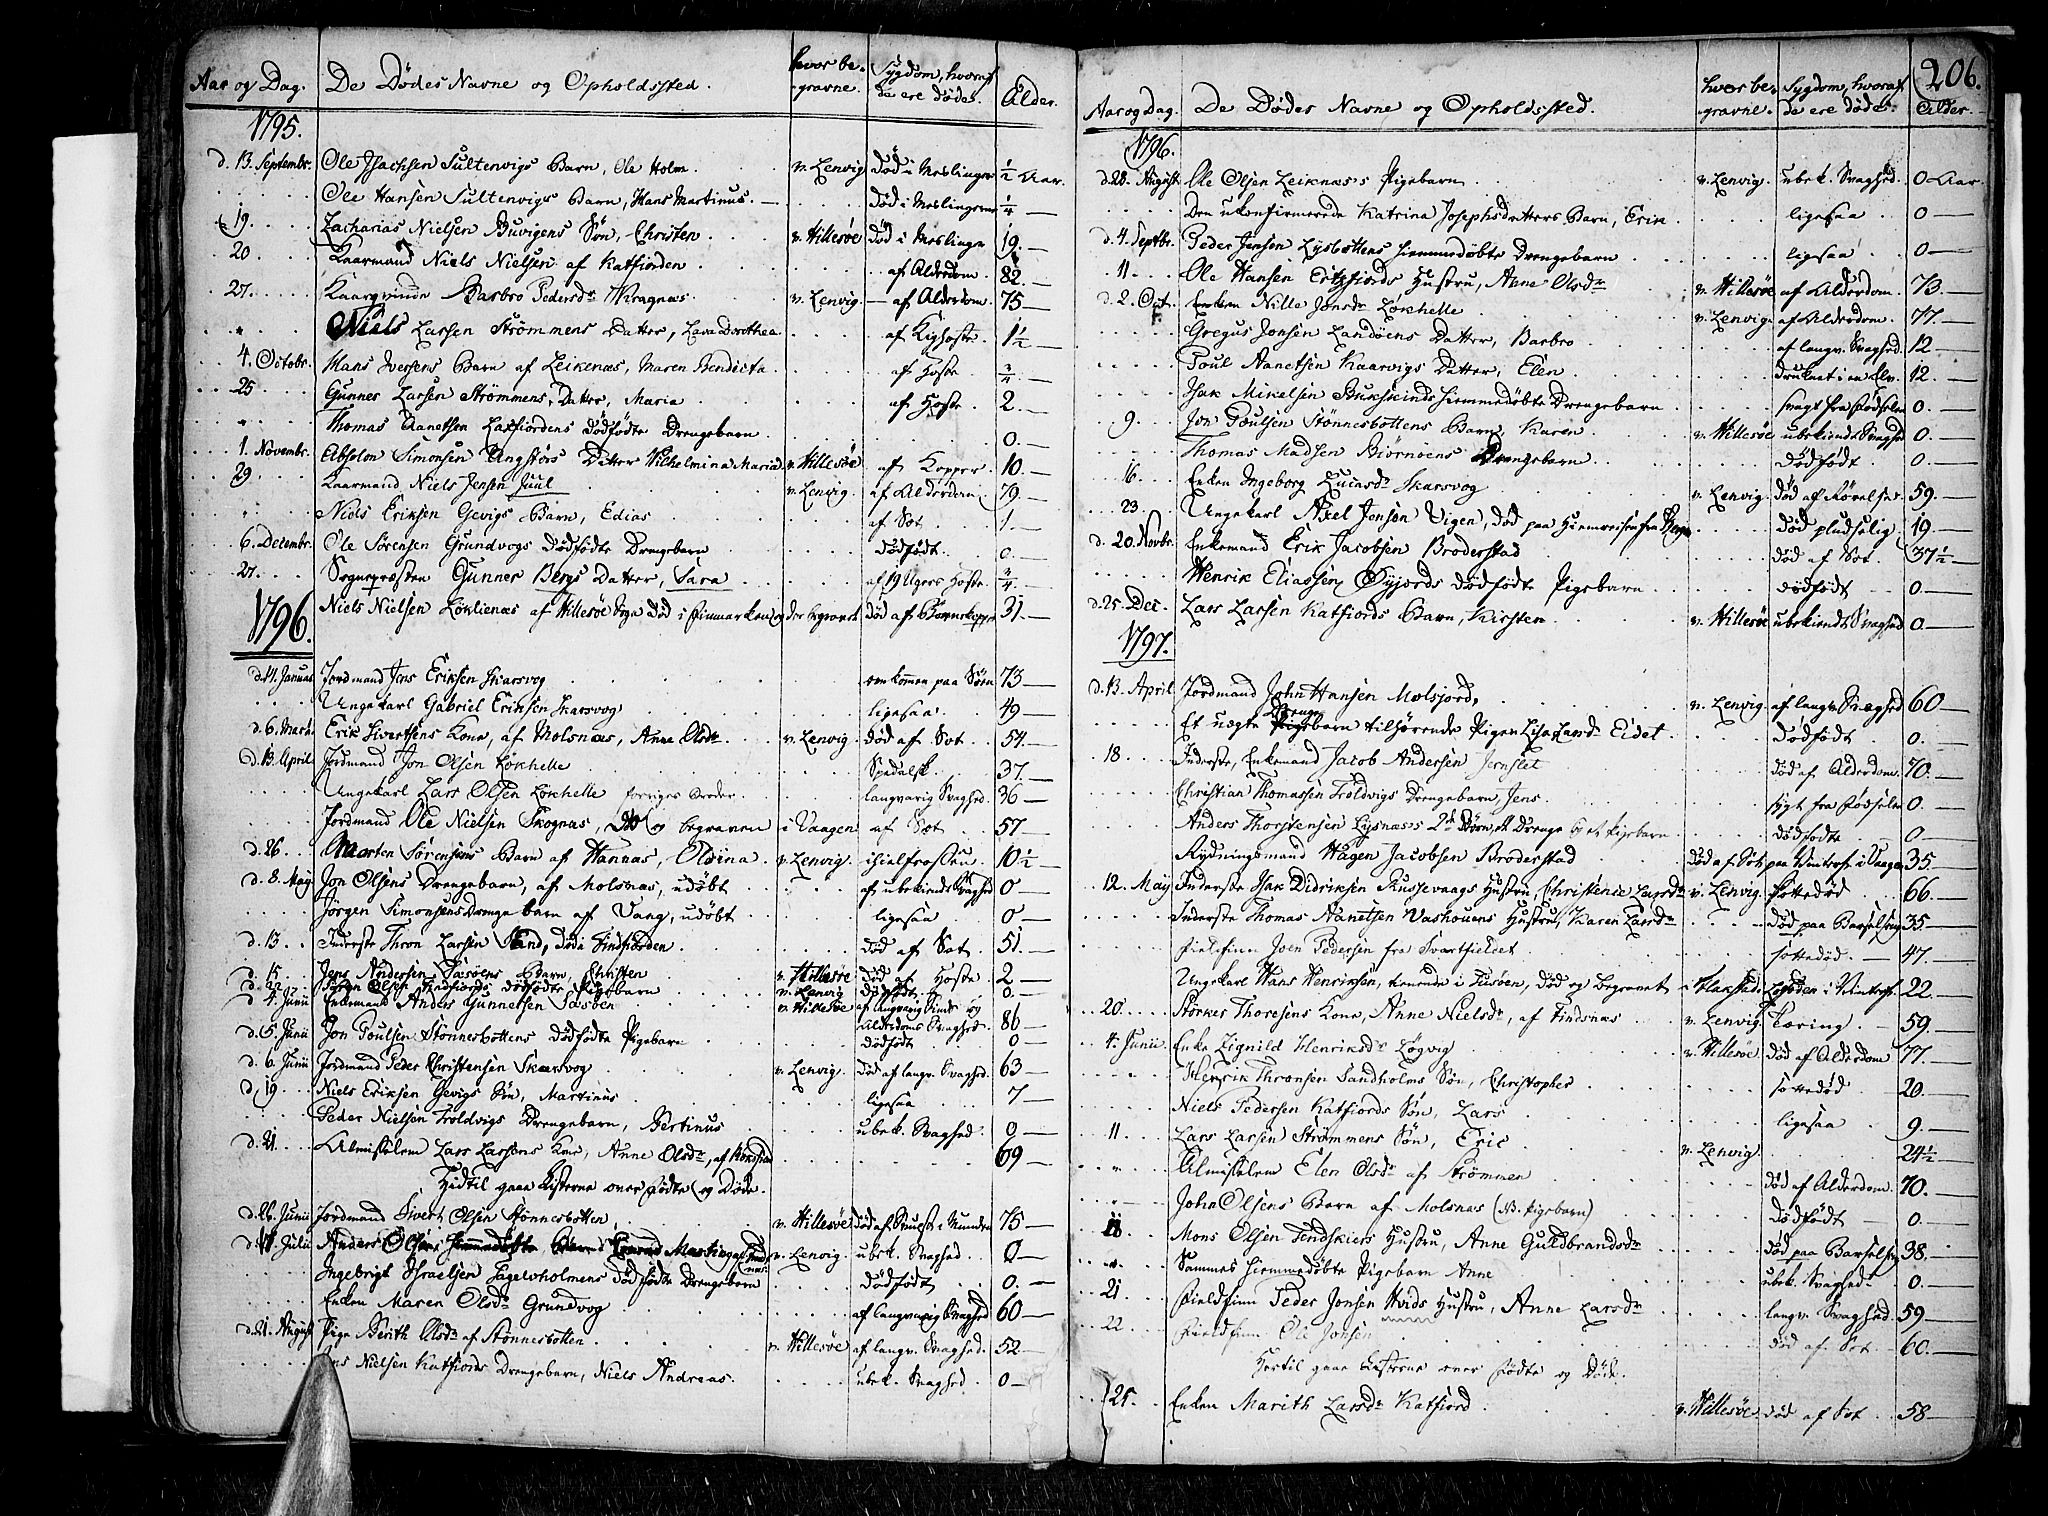 Aar og Dag. De Dødes Navne og Opholdssted. hvor be-gravne. Sygdom, hvoraf de ere døde. Alder.
1795.
d. 13. Septembr. Ole Isachsen Sultenvigs Barn, Ole Holm. v. Lenvig Død i Meslinger ½ Aar.
Ole Hansen Sultenvigs Barn, Hans Martinus. Død i Meslingerne ¼
19. Zacharias Nielsen Buvigens Søn, Christen v. Hillesøe Død i Meslinge 19.
20 Kaarmand Niels Nielsen af Katfiorden af Alderdom. 82.
27. Kaarqvinde Barbro Pedersdr Kragnæs v. Lenvig af Alderdom. 75
Niels Larsen Strömmens Datter, Lava Dorothea af Kighoste. 1½
4. Octobr. Hans Iversens Barn af Leikenæs, Maren Bendicta af Hoste ¾
25 Gunner Larsen Strömmens, Datter, Maria af Hoste. 2.
Thomas Aanetsen Laxfiordens dödfödte Drengebarn 0.
1. Novembr. Absolon Simonsen Angstörs Datter Vilhelmina Maria v. Hillesøe af Kopper 10.
29 Kaarmand Niels Jensen Juul v. Lenvig. af Alderdom 79.
Niels Eriksen Gevigs Barn, Edias af Sot 1.
6. Decembr. Ole Sörensen Grundvogs dödfödte Drengebarn dödfödt. 0.
27. Sogneprösten Gunner Bergs Datter, Sara af 19 Ugers Hoste ¾
1796.
Niels Nielsen Löklienæs af Hillesøe Sogn Död i Finmarken og der begravet död af Barnekopper 31.
d. 14. Januar Jordmand Jens Eriksen Skarsvog omkommen paa Söen 73
Ungekarl Gabriel Eriksen Skarsvog ligesaa 49
d. 6. Marti Erik Sivertsens Kone, af Molsnæs, Anne Olsdr v. Lenvig. död af Sot 54.
d. 13. April Jordmand Jon Olsen Lökhelle Spedalsk 37.
Ungekarl Lars Olsen Lökhelle forriges Broder langvarig Svaghed. 36
Jordmand Ole Nielsen Skognæs, död og begraven i Vaagen af Sot 57
d. 26. Morten Sörensens Barn af Hannæs, Oldina v. Lenvig. ihielfrossen 10½
d. 8. May Jon Olsens Drengebarn, af Molsnæs, udöbt af ubekiendt Svaghed 0
Jörgen Simonsens Drengebarn af Vang, udöbt ligesaa 0
d. 13 Inderste Thron Larsen Sand, död i Findfiorden död af Sot 51.
d. 15 Jens Andersen Sæsöens Barn, Christen v. Hillesøe död af Hoste 2
d. 22 dödfödte Pigebarn v. Lenvig dödfödt 0.
d. 4. Junii Enkemand Anders Gunnersen Sæsöen v. Hillesøe af langvarig og Alderdoms Svaghed 86
d. 5. Junii Jon Poulsen Stönnesbottens dödfödte Pigebarn dödfödt 0
d. 6. Junii Jordmand Peder Christensen Skarsvog v. Lenvig. död af langv. Svaghed. 63
d. 19 Niels Eriksen Gevigs Sön, Martinus ligesaa 7
Peder Nielsen Troldvigs Drengebarn, Bertinus ubek. Svaghed 0
d. 21 Almisselem Lars Larsens Kone, Anne Olsdr, af 69
Hidtil gaae Listerne over födte og Döde.
d. 26. Junii Jordmand Sivert Olsen Stönnesbotten v. Hillesøe död af i Munden 75
d. 17. Julii Anders Olsens v. Lenvig ubek. Svaghed 0
Ingebrigt Israelsen Fagelvholmens dödfödte Drengebarn dödfödt 0.
Enken Maren Olsdr Grundvog af langvarig Svaghed 60
d. 21. August Pige Berith Olsdr af Stönnesbotten v. Hillesøe af langv. Svaghed. 52
Nielsen Katfiords Drengebarn, Niels Andreas. ubek. Svaghed. 0
206.
Aar og Dag. De Dödes Navne og Opholdssted. hvor be-gravne. Sygdom, hvoraf de ere döde. Alder.
1796.
d. 28. August Ole Olsen Leiknæs's Pigebarn v. Lenvig. ubek. Svaghed. 0 Aar.
Den ukonfirmerede Katrina Josephsdatters Barn, Erik ligesaa 0
d. 4. Septbr. Peder Jensen Lysbottens hiemmedöbte Drengebarn ligesaa 0
11 Ole Hansen Ertzfiords Hustru, Anne Olsdr v. Hillesøe af Alderdom. 73.
d. 2. Oct. Enken Nille Jonsdr Lökhelle v. Lenvig. af Alderdom. 77.
Gregus Jonsen Landöens Datter, Barbro af langv. Svaghed 12
Poul Aanetsen Kaarvigs Datter, Elen druknet i en Elv. 12.
Isak Mikelsen Bukskinds hiemmedöbte Drengebarn svagt fra Födselen 0.
9 Jon Poulsen Stönnesbottens Barn, Karen v. Hillesøe ubekiendt Svaghed 0.
Thomas Madsen Biörnöens Drengebarn dödfödt. 0.
16 Enken Ingeborg Lucasdr Skarsvog v. Lenvig. död af 59.
23 Ungekarl Axel Jensen Vigen, död paa Hiemreisen fra Bergen död pludselig. 19.
d. 20. Novbr. Enkemand Erik Jacobsen Broderstad död af Sot 37½
Henrik Eliassen Öyjords dödfödte Pigebarn dödfödt 0
d. 25. Dec. Lars Larsen Katfiords Barn, Kirsten v. Hillesøe ubekiendt Svaghed 0.
1797.
d. 13. April Jordmand John Hansen Molsjord, v. Lenvig. af langv. Svaghed 60
Et uægte Drenge Pigebarn tilhörende Pigen Eidet dödfödt 0.
18 Inderste, Enkemand Jacob Andersen Jernslet död af Alderdom. 70.
Christian Thomassen Troldvigs Drengebarn, Jens sygt fra Födselen 0.
Anders Thorstensen Lysnæs's 2de Börn, et Drenge og et Pigebarn dödfödte 0
Rydningsmand Hagen Jacobsen Broderstad död af Sot paa Vinterf. i Vaagen 35.
12. May Inderste Isak Didriksen Russevaags Hustru, Christenie Larsdr v. Lenvig. sottedöd 66.
Inderste Thomas Aanetsen Vashouens Hustru, Karen Larsdr död paa Barselseng 35
Fieldfinn Joen Pedersen fra Svartfieldet sottedöd. 47.
Ungekarl Hans Henriksen, tienende i Tusöen, död og begravet i Flakstad i Vinterf. 22.
20. Störker Thoresens Kone, Anne Nielsdr, af Findsnæs v. Lenvig. Tæring. 59.
4. Junii Enke Zignild Henriksdr Lögvig v. Hillesøe död af Alderdom 77.
Henrik Thronsen Sandholms Sön, Christopher sottedöd 20.
Niels Pedersen Katfiords Sön, Lars ligesaa 9.
11. Lars Larsen Strömmens Sön, Eric v. Lenvig. 24½
Almisselem Elen Olsdr af Strömmen död af Alderdom. 70.
John Olsens Barn af Molsnæs (NB. Pigebarn) dödfödt 0.
18 Mons Olsen Fendskiers Hustru, Anne Guldbrandsdr död paa Barselseng 38.
Sammes hiemmedöbte Pigebarn Anne ubek. Svaghed. 0.
21 Fieldfinn Peder Jonsen Hvids Hustru, Anne Larsdr langv. Svaghed. 59
22 Fieldfinn Ole Jonsen död af Sot 60.
Hertil gaae Listerne over födte og Döde.
25. Enken Marith Larsdr Katfiord v. Hillesøe. död af Sot 58